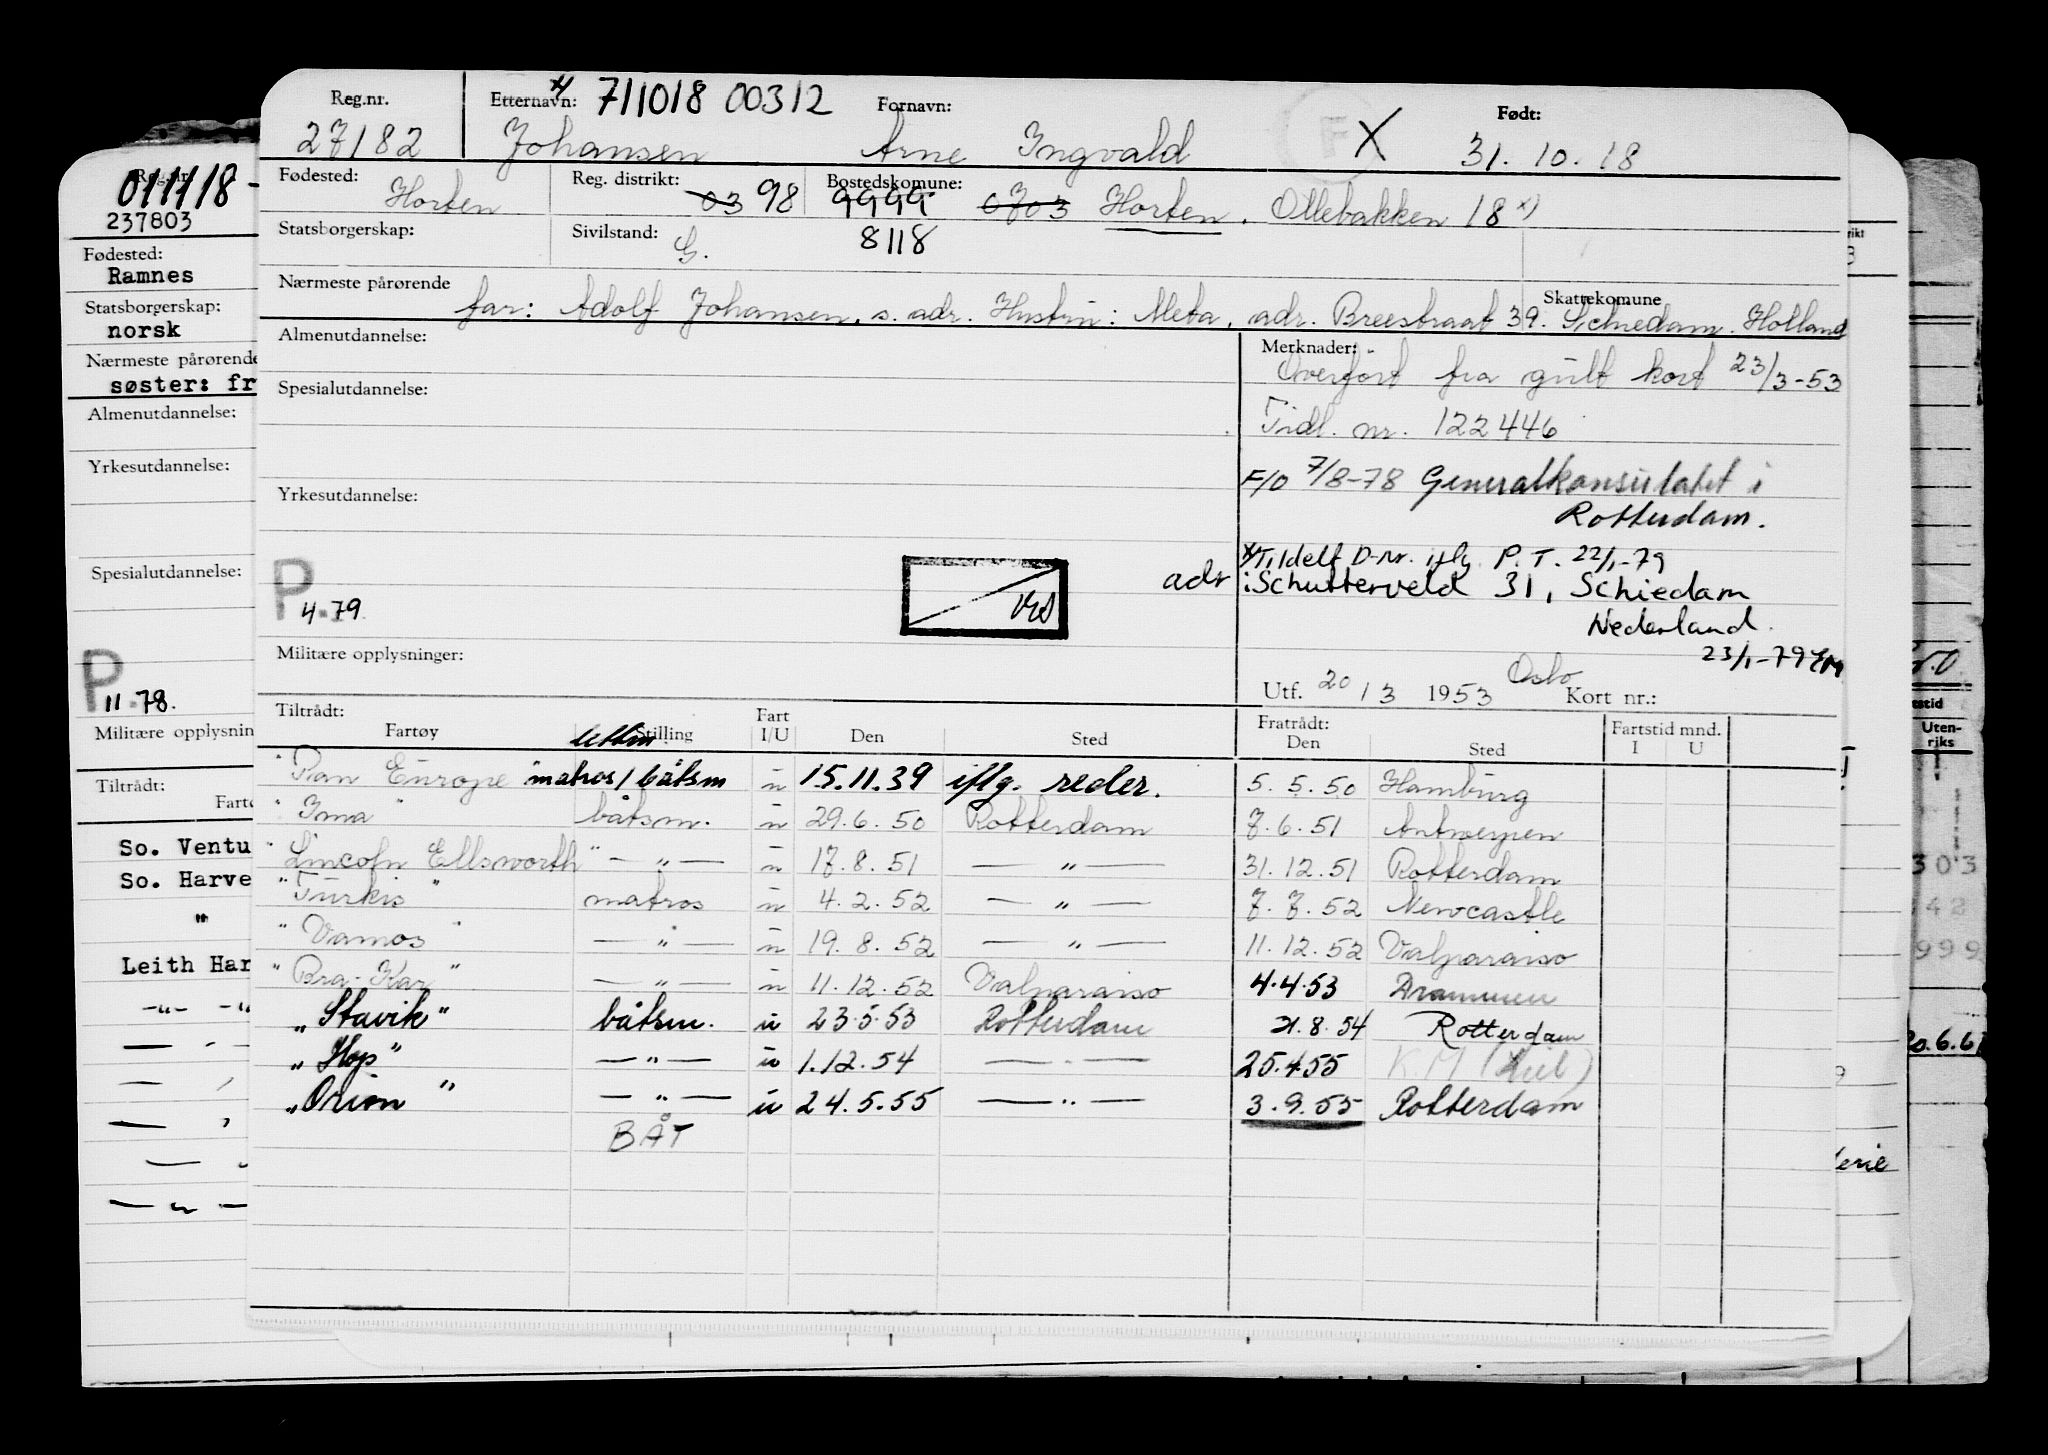 Reg.nr. Etternavn: x) 711018 00312 Fornavn: F X Født:
27182 Johansen Arne Ingvald 31. 10. 18
Fødested: Horten Reg. distrikt: 03 98 Bostedskomune: 9999 0703 Horten. Ollebakken 18 x)
Statsborgerskap: Sivilstand: G. 8118
Nærmeste pårørende Skattekomune
far: Adolf Johansen, s. adr. Hustru: Meta, adr. Breestraat 39. Schiedam. Holland
Almenutdannelse: Merknader:
Overført fra gult kort 23/3-53
Spesialutdannelse:
Tidl. nr. 122446
F/O 7/8-78 Generalkonsulatet i
Yrkesutdannelse:
Rotterdam.
x) Tildelt D-nr. iflg. P.T. 22/1-79
adr i Schutterveld 31, Schiedam
P 4.79
Nederland.
23/1-79
Militære opplysninger:
Utf. 20/3 1953 Oslo Kort nr.:
Tiltrådt: Fart Fratrådt: Fartstid mnd.
Fartøy Stilling I/U Den Sted Den Sted I U
lettm
"Pan Europe matros/båtsm u 15.11.39 iflg. reder. 5. 5. 50 Hamburg
"Ima" båtsm. u 29. 6. 50 Rotterdam 7. 6. 51 Antwerpen
"Lincoln Ellsworth" — " — u 17. 8. 51 — " — 31. 12. 51 Rotterdam
"Turkis" matros u 4. 2. 52 — " — 7. 7. 52 Newcastle
"Vamos" — " — u 19. 8. 52 — " — 11. 12. 52 Valparaiso
"Bra-Kar" — " — u 11. 12. 52 Valparaiso 4.4.53 Drammen
"Stavik" båtsm. u 23.5.53 Rotterdam 21.8.54 Rotterdam
"Hop" — " — u 1.12.54 — " — 25.4.55 K.M (Kiel)
"Orion" — " — u 24.5.55 — " — 3.9.55 Rotterdam
BÅT
Reg.nr.
011118-
237803
Fødested:
Ramnes
Statsborgerskap:
norsk
Nærmeste pårørende
søster: fr
Almenutdannelse:
Yrkesutdannelse:
Spesialutdannelse:
P 11.78.
Militære opplysnin
Tiltrådt:
Fartø
So. Ventu
So. Harve
"
Leith Har
-"- -"
Uten-
riks
303
42
999
20.6.6